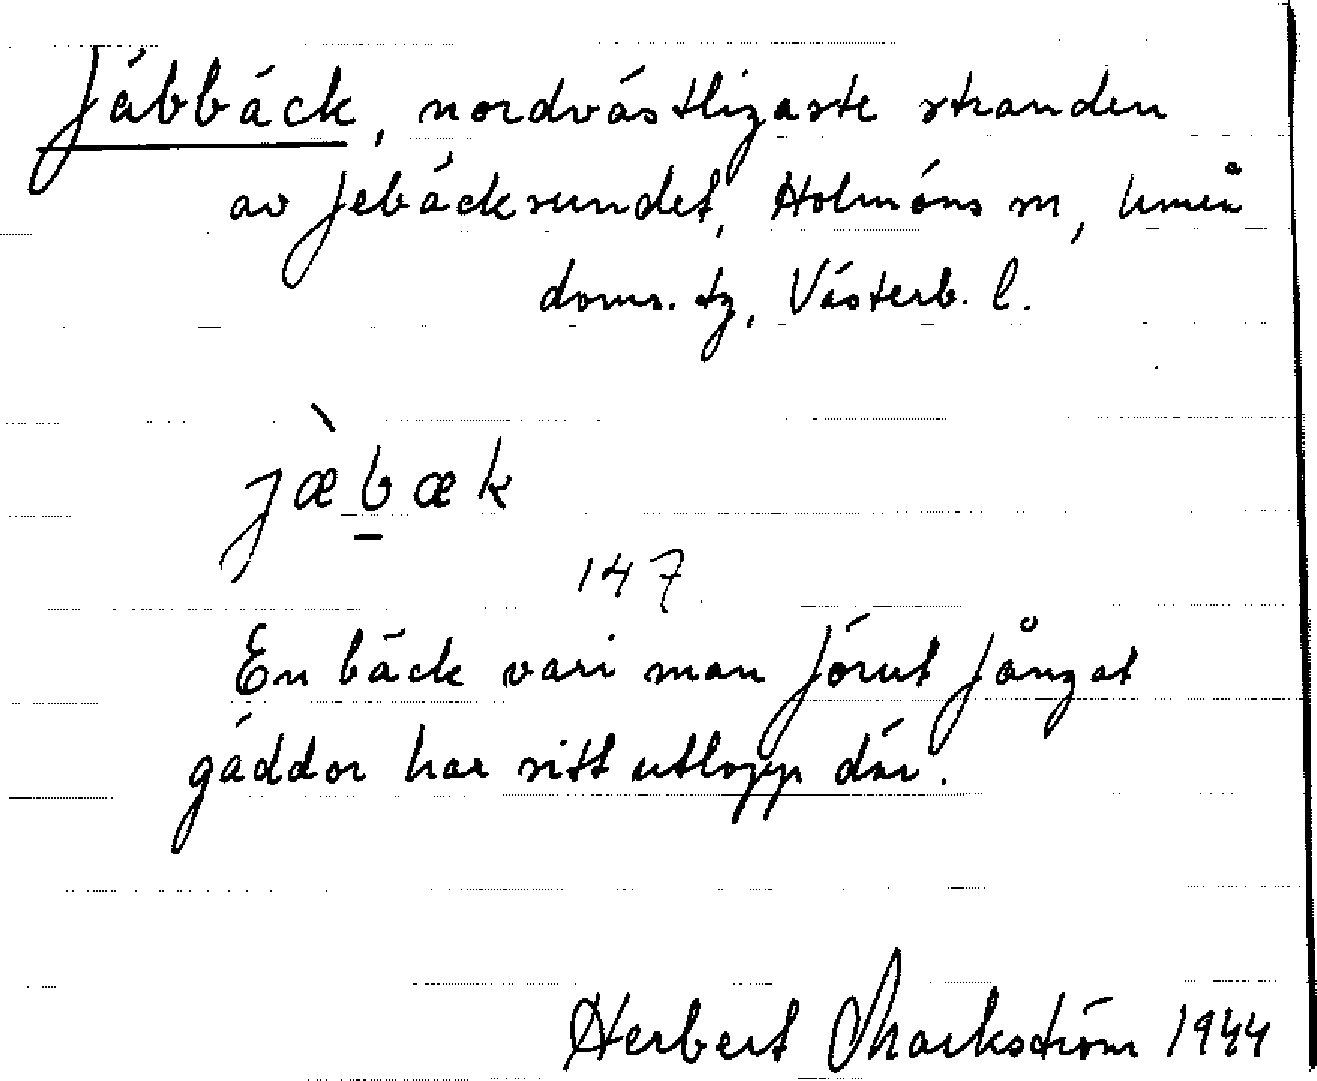 Jäbbäck, nordvästligaste stranden
av Jebäcksundet, Holmöns sn, Umeå
doms. tg, Västerb. l.
jæ̀bæk
147
En bäck vari man förut fångat
gäddor har sitt utlopp där.
Herbert Markström 1944